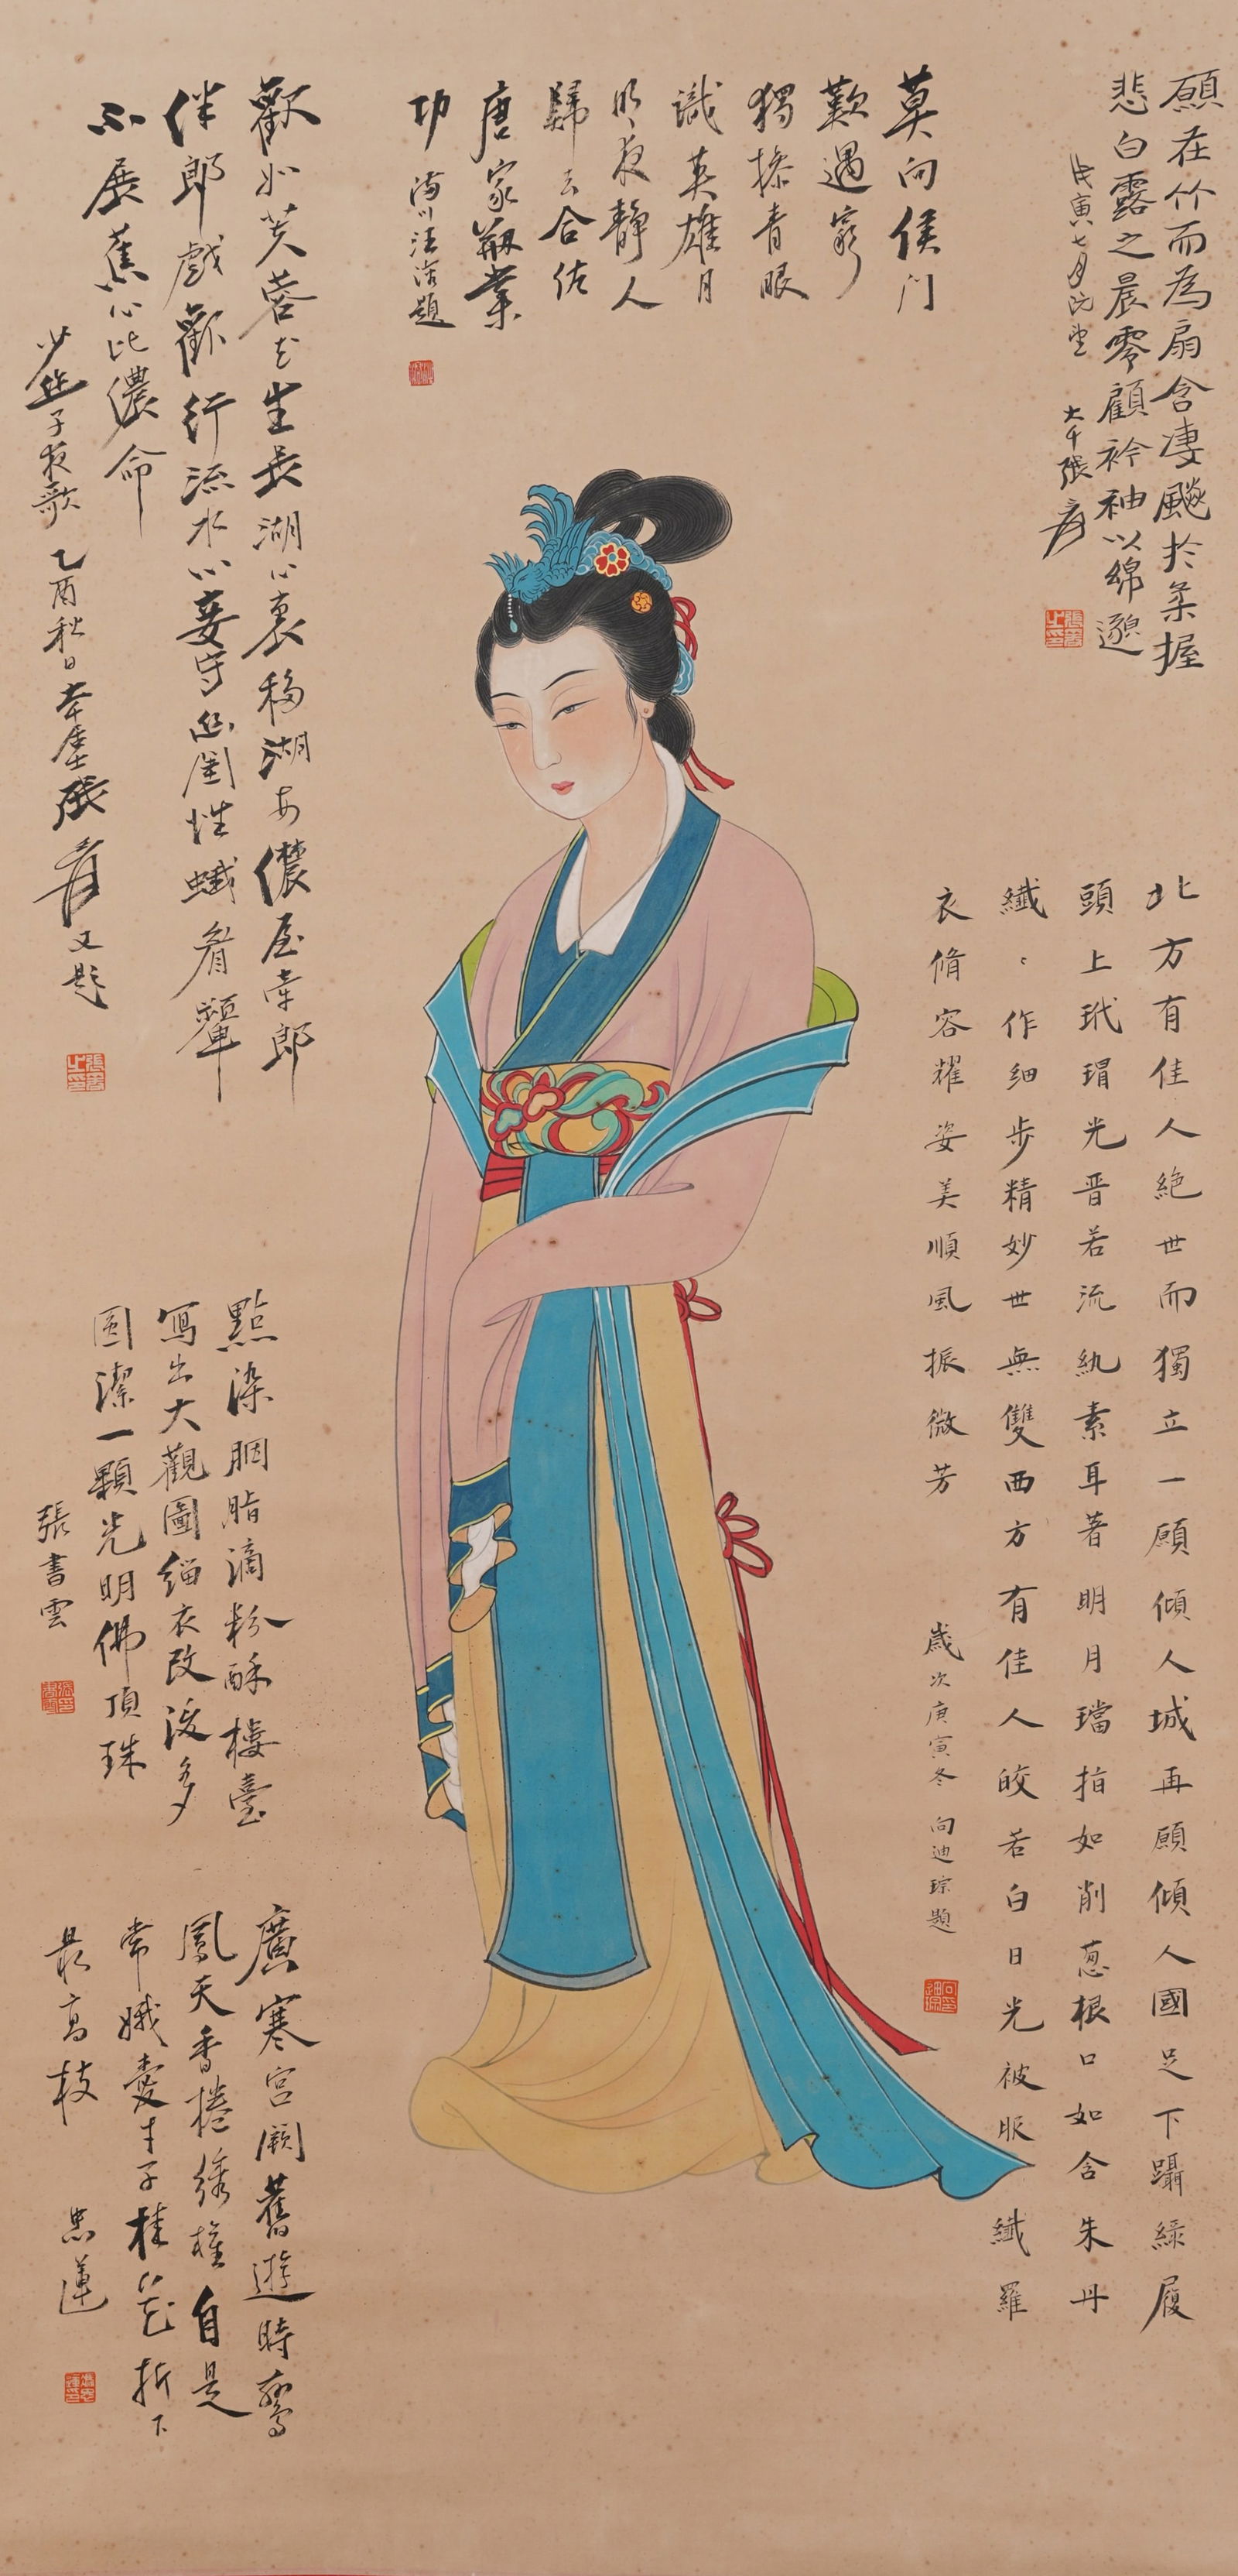 願在竹而為扇含淒飈於柔握
悲白露之晨零顧衿袖以緬邈
戊寅七月 大千張爰
莫向侯門
歎遇窮
獨搽青眼
識英雄月
明夜靜人
歸去合佐
唐家剏業
功 海川汪浩題
歡如芙蓉花生長湖心裏移湖安儂屋牽郎
伴郎戲歡行流水心妾守幽閨性蛾眉顰
不展蕉心比儂命
少逸子夜歌 乙酉秋日 張爰又題
北方有佳人絕世而獨立一顧傾人城再顧傾人國足下躡綠履
頭上玳瑁光晋若流紈素耳著明月璫指如削葱根口如含朱丹
纖纖作細步精妙世無雙西方有佳人皎若白日光被服纖羅
衣脩容耀姿美順風振微芳
歲次庚寅冬 向迪琮題
點染胭脂滴粉酥樓臺
寫出大觀圖緇衣改後多
圓潔一顆光明佛頂珠
張書雲
廣寒宮闕舊遊時鸞
鳳天香捲綉 自是
常娥愛才子桂花折下
最高枝